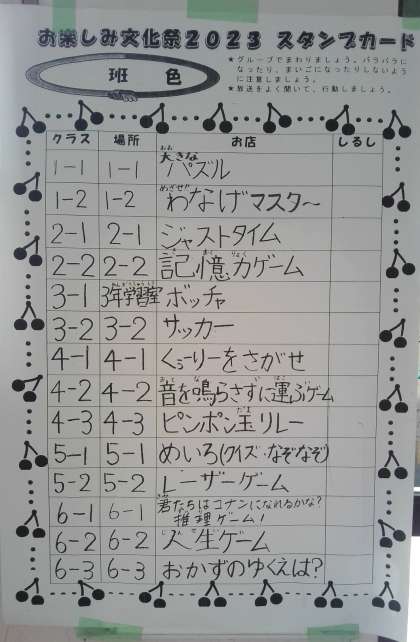 お楽しみ文化祭2023 スタンプカード
班 色
★グループでまわりましょう。バラバラに
なったり、まいごになったりしないよう
に注意しましょう。
★放送をよく聞いて、行動しましょう。
クラス 場所 お店 しるし
1-1 1-1 大きなパズル
1-2 1-2 めざせ!!わなげマスター
2-1 2-1 ジャストタイム
2-2 2-2 記憶力ゲーム
3-1 3年学習室 ボッチャ
3-2 3-2 サッカー
4-1 4-1 くぅーりーをさがせ
4-2 4-2 音を鳴らさずに運ぶゲーム
4-3 4-3 ピンポン玉リレー
5-1 5-1 めいろ(クイズ・なぞなぞ)
5-2 5-2 レーザーゲーム
6-1 6-1 君たちはコナンになれるかな?
推理ゲーム!
6-2 6-2 人生ゲーム
6-3 6-3 おかずのゆくえは?